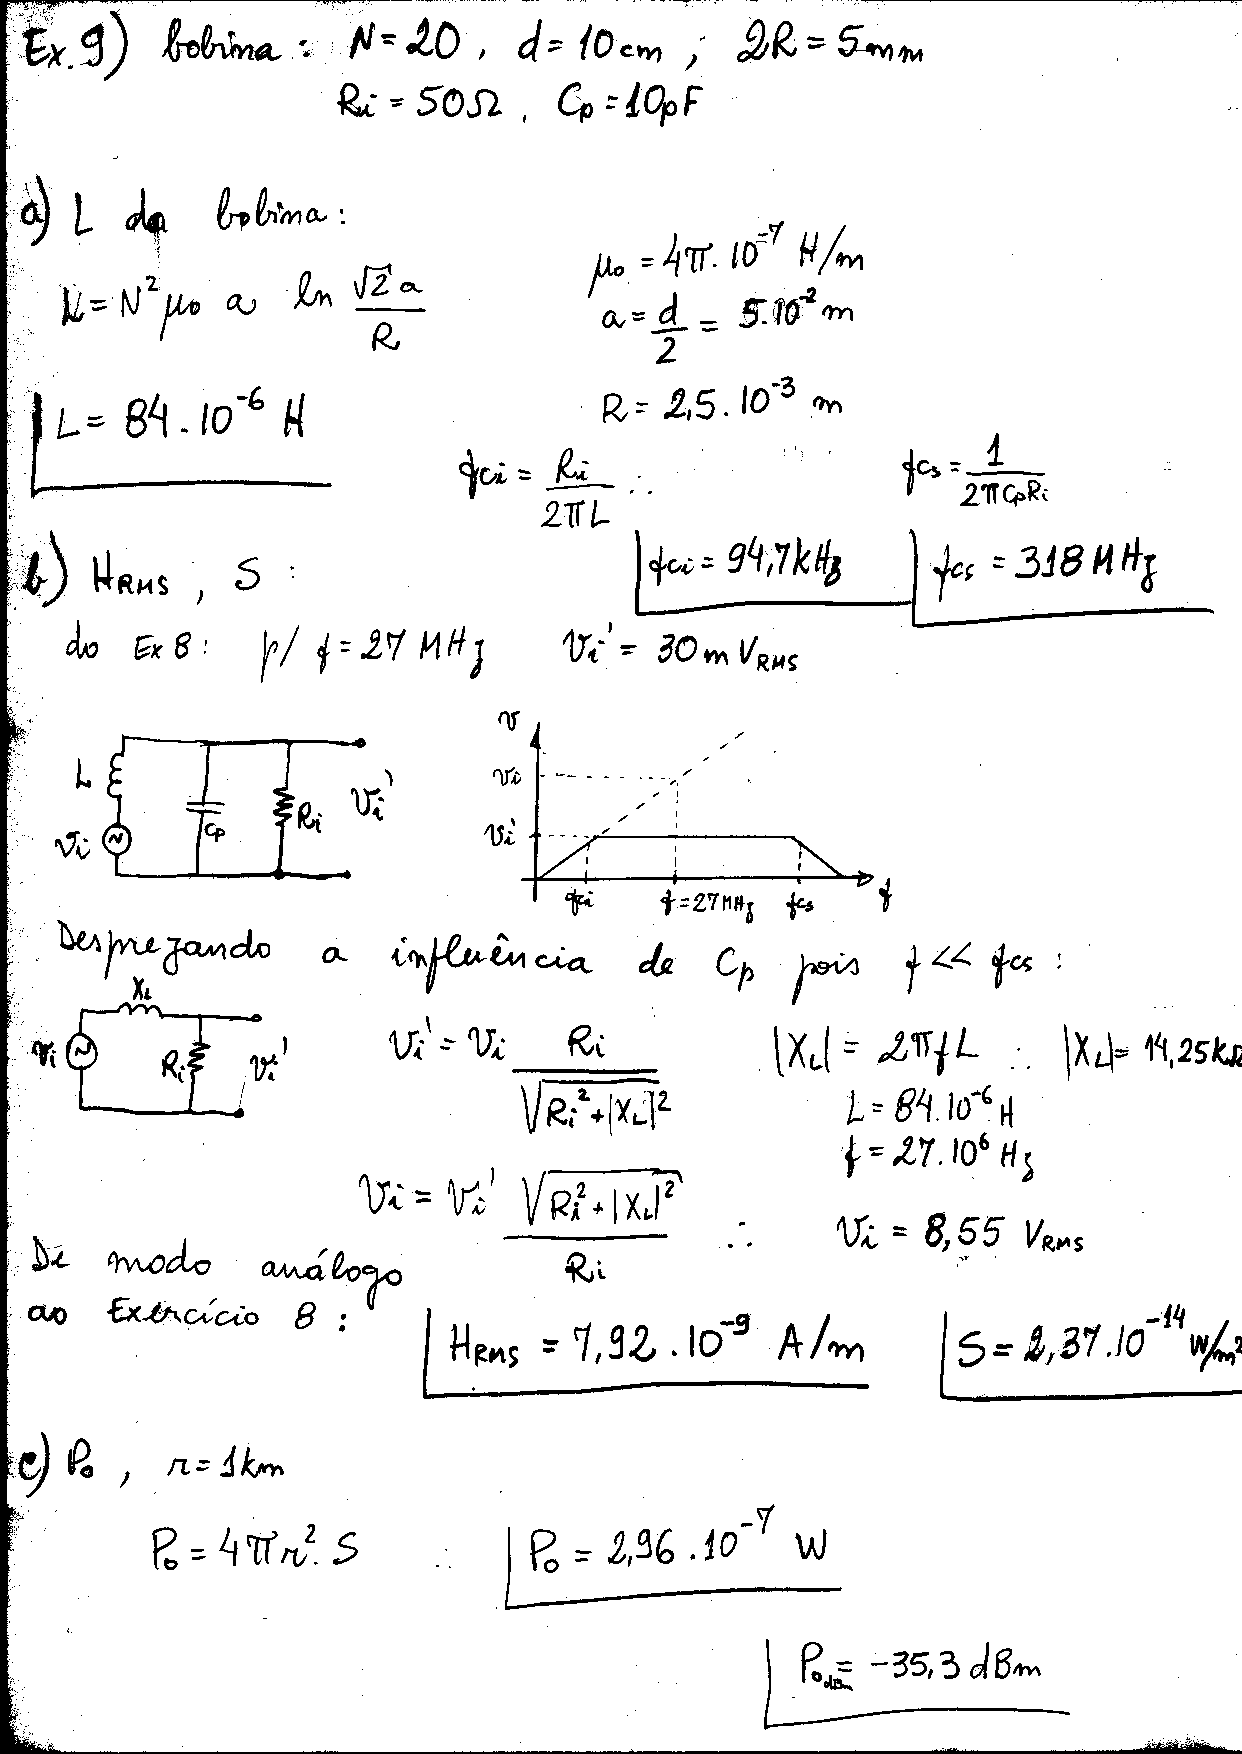 Ex.9) bobina : N=20 , d=10cm ; 2R=5mm
Ri=50Ω , Cp=10pF
a) L da bobina :
μ₀ = 4π.10⁻⁷ H/m
L=N²μ₀ a ln √2 a / R
a = d/2 = 5.10⁻² m
L= 84.10⁻⁶ H
R = 2,5.10⁻³ m
fci = Ri / 2πL ∴
fcs = 1 / 2πCpRi
fci = 94,7kHz
fcs = 318 MHz
b) HRMS , S :
do Ex 8: p/ f=27 MHz Vi' = 30 m VRMS
v
vi
vi'
L
Vi
Cp
Ri
Vi'
fci
f=27MHz
fcs
f
Desprezando a influência de Cp pois f << fcs :
XL
vi
Ri
vi'
Vi' = Vi Ri / √Ri²+|XL|²
|XL| = 2πfL ∴ |XL|= 14,25kΩ
L = 84.10⁻⁶ H
f = 27.10⁶ Hz
Vi = Vi' √Ri²+|XL|² / Ri ∴ Vi = 8,55 VRMS
De modo análogo
ao Exercício 8 :
HRMS = 7,92.10⁻⁹ A/m
S = 2,37.10⁻¹⁴ W/m²
c) P₀ , r=1km
P₀ = 4πr². S ∴ P₀ = 2,96.10⁻⁷ W
P₀dBm = -35,3 dBm